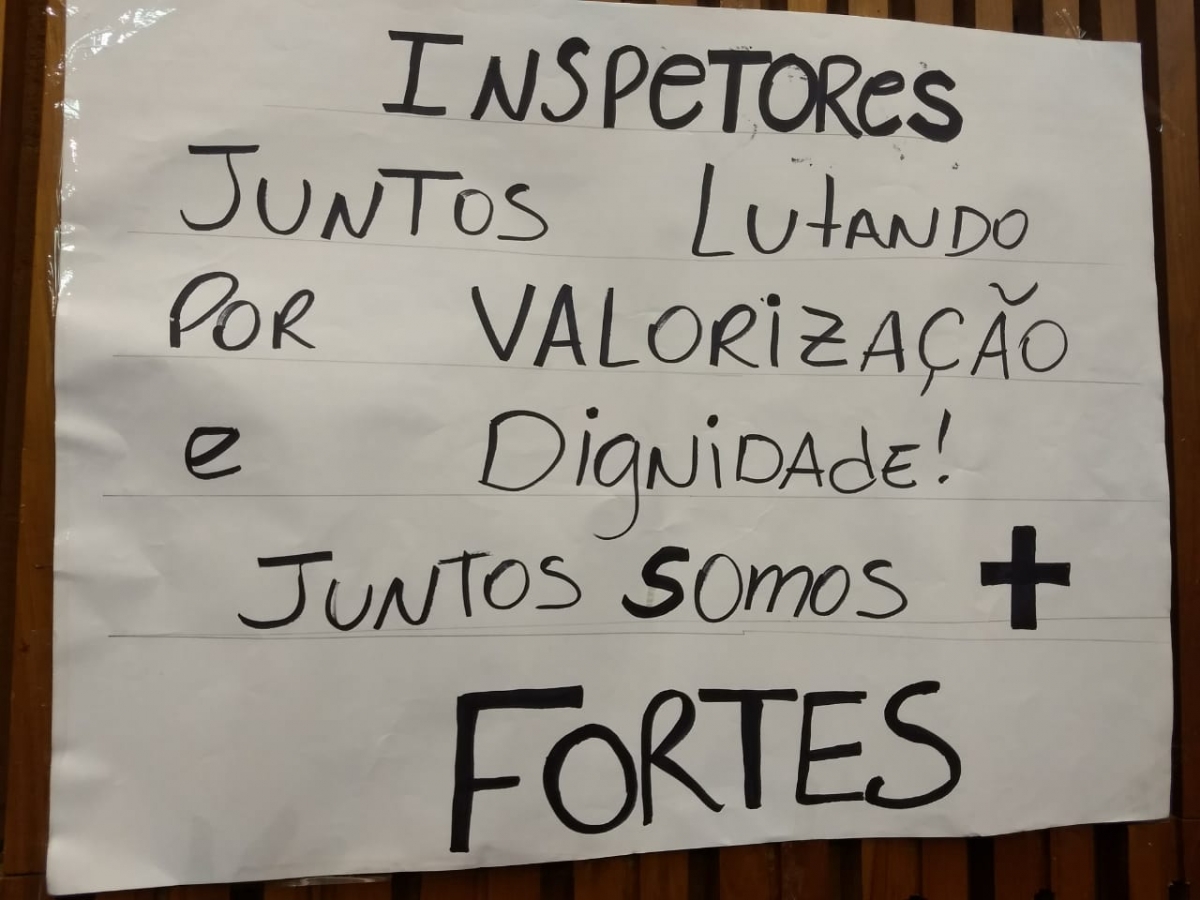 INSPeTOReS
JUNTOS LUtANDO
POR VALORiZAÇÃO
e DigNiDADdE!
JUNTOS SOmOS +
FORTES